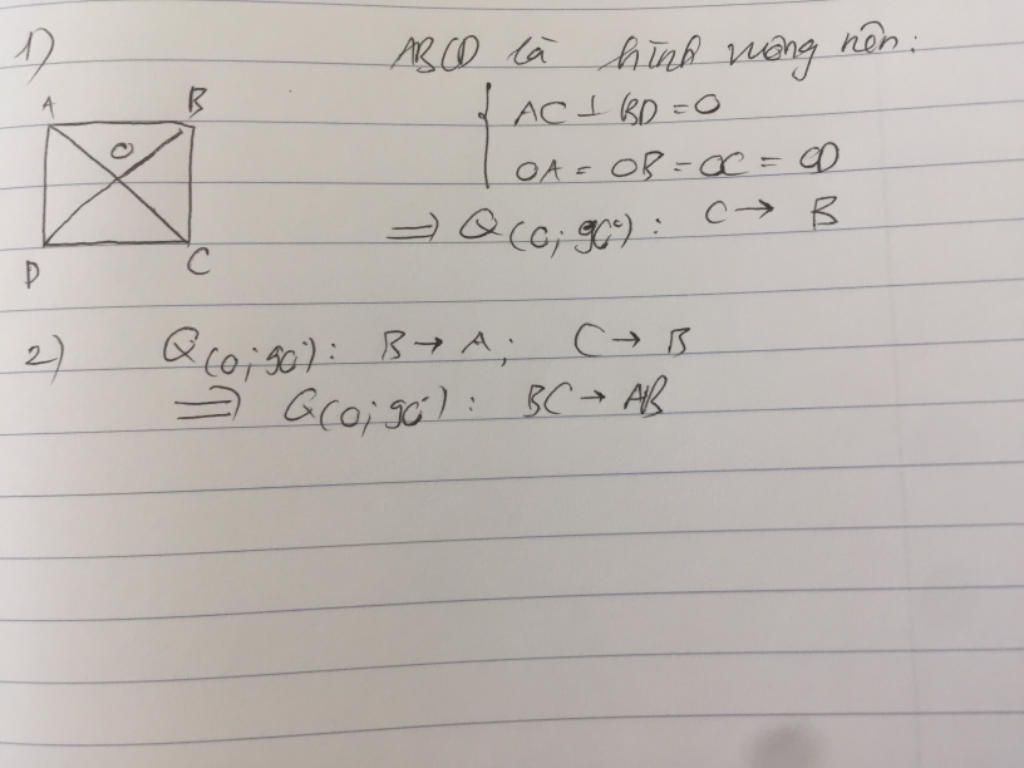 1)
ABCD là hình vuông nên:
A B
AC ⊥ BD = O
O
OA = OB = OC = OD
⇒ Q(O; 90°): C → B
D C
2) Q(O; 90°): B → A; C → B
⇒ Q(O; 90°): BC → AB